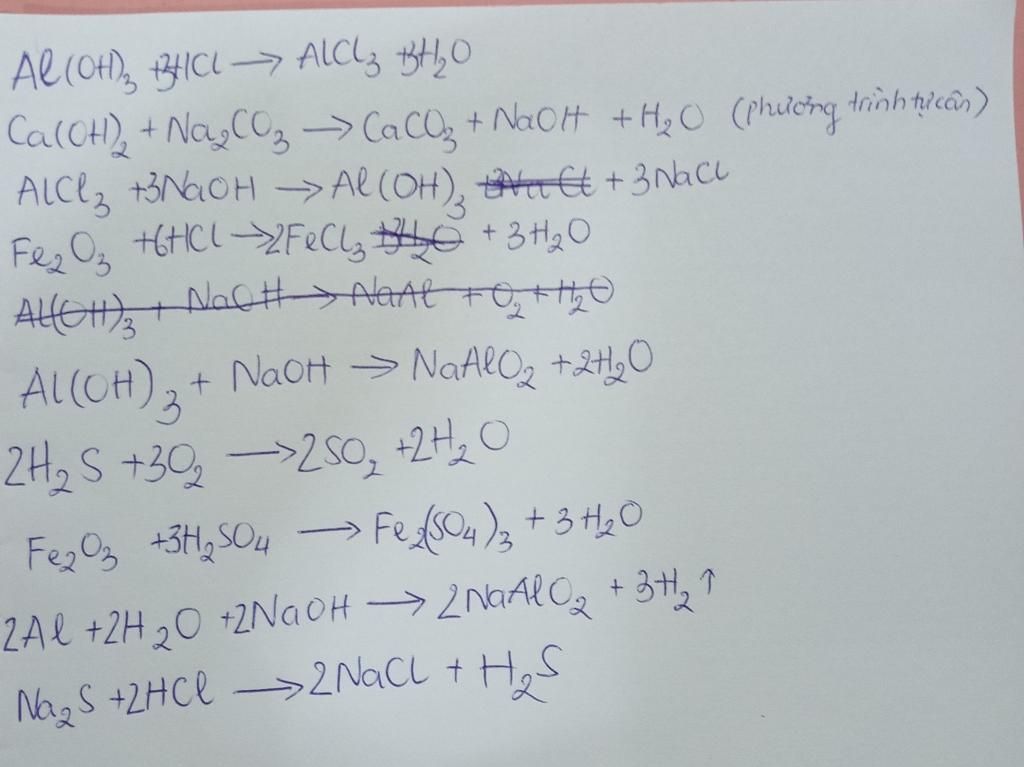 Al(OH)₃ +3HCl → AlCl₃ +3H₂O
Ca(OH)₂ + Na₂CO₃ → CaCO₃ + NaOH + H₂O (phương trình tự cân)
AlCl₃ +3NaOH → Al(OH)₃ +3NaCl + 3NaCl
Fe₂O₃ +6HCl → 2FeCl₃ +3H₂O + 3H₂O
Al(OH)₃ + NaOH → NaAl + O₂ + H₂O
Al(OH)₃ + NaOH → NaAlO₂ +2H₂O
2H₂S +3O₂ → 2SO₂ +2H₂O
Fe₂O₃ +3H₂SO₄ → Fe₂(SO₄)₃ + 3H₂O
2Al +2H₂O +2NaOH → 2NaAlO₂ + 3H₂↑
Na₂S +2HCl → 2NaCl + H₂S